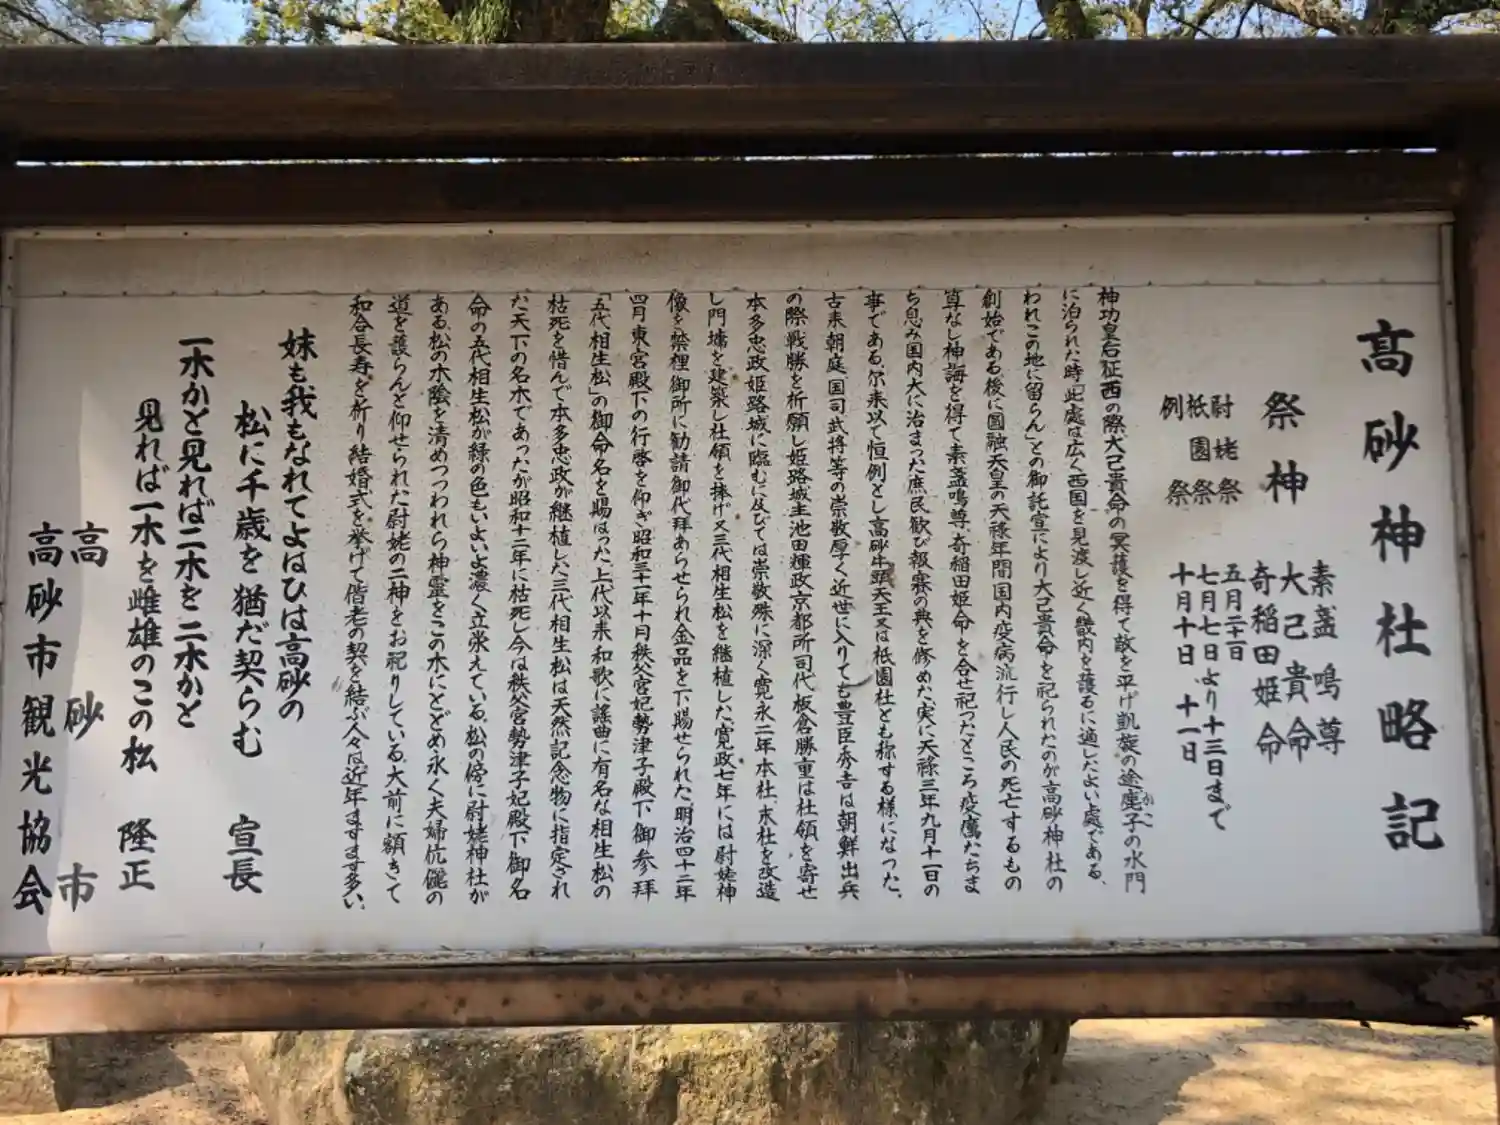 高砂神社略記
祭神 素盞鳴尊
大己貴命
奇稲田姫命
尉姥祭 五月二十一日
祇園祭 七月七日より十三日まで
例祭 十月十日、十一日
神功皇后征西の際大己貴命の冥護を得て敵を平げ凱旋の途鹿子の水門
に泊られた時「此處は広く西国を見渡し近く畿内を護るに適したよい處である、
われこの地に留らん」との御託宣により大己貴命を祀られたのが高砂神社の
創始である後に圓融天皇の天祿年間国内疫病流行し人民の死亡するもの
算なし神誨を得て素盞鳴尊、奇稲田姫命を合せ祀ったところ疫癘たちま
ち息み国内大に治まった庶民歓び報賽の典を修めた、実に天祿三年九月十一日の
事である、尓来以て恒例とし高砂牛頭天王又は祇園社とも称する様になった、
古来朝庭、国司、武将等の崇敬厚く近世に入りても豊臣秀吉は朝鮮出兵
の際戦勝を祈願し姫路城主池田輝政京都所司代板倉勝重は社領を寄せ
本多忠政姫路城に臨むに及びては崇敬殊に深く寛永二年本社、末社を改造
し門墻を建築し社領を捧げ又三代相生松を継植した、寛政七年には尉姥神
像を禁裡御所に勧請御代拜あらせられ金品を下賜せられた、明治四十二年
四月東宮殿下の行啓を仰ぎ昭和三十一年十月秩父宮妃勢津子殿下御参拜
「五代相生松」の御命名を賜はった上代以来和歌に謡曲に有名な相生松の
枯死を惜んで本多忠政が継植した三代相生松は天然記念物に指定され
た天下の名木であったが昭和十二年に枯死し今は秩父宮勢津子妃殿下御名
命の五代相生松が緑の色もいよいよ濃く立栄えている、松の傍に尉姥神社が
ある、松の木陰を清めつつわれら神霊をこの木にとどめ永く夫婦伉儷の
道を護らんと仰せられた尉姥の二神をお祀りしている、大前に額きて
和合長寿を祈り結婚式を挙げて偕老の契を結ぶ人々は近年ますます多い、
妹も我もなれてよはひは高砂の
松に千歳を猶だ契らむ 宣長
一木かと見れば二木を二木かと
見れば一木を雌雄のこの松 隆正
高砂市
高砂市観光協会